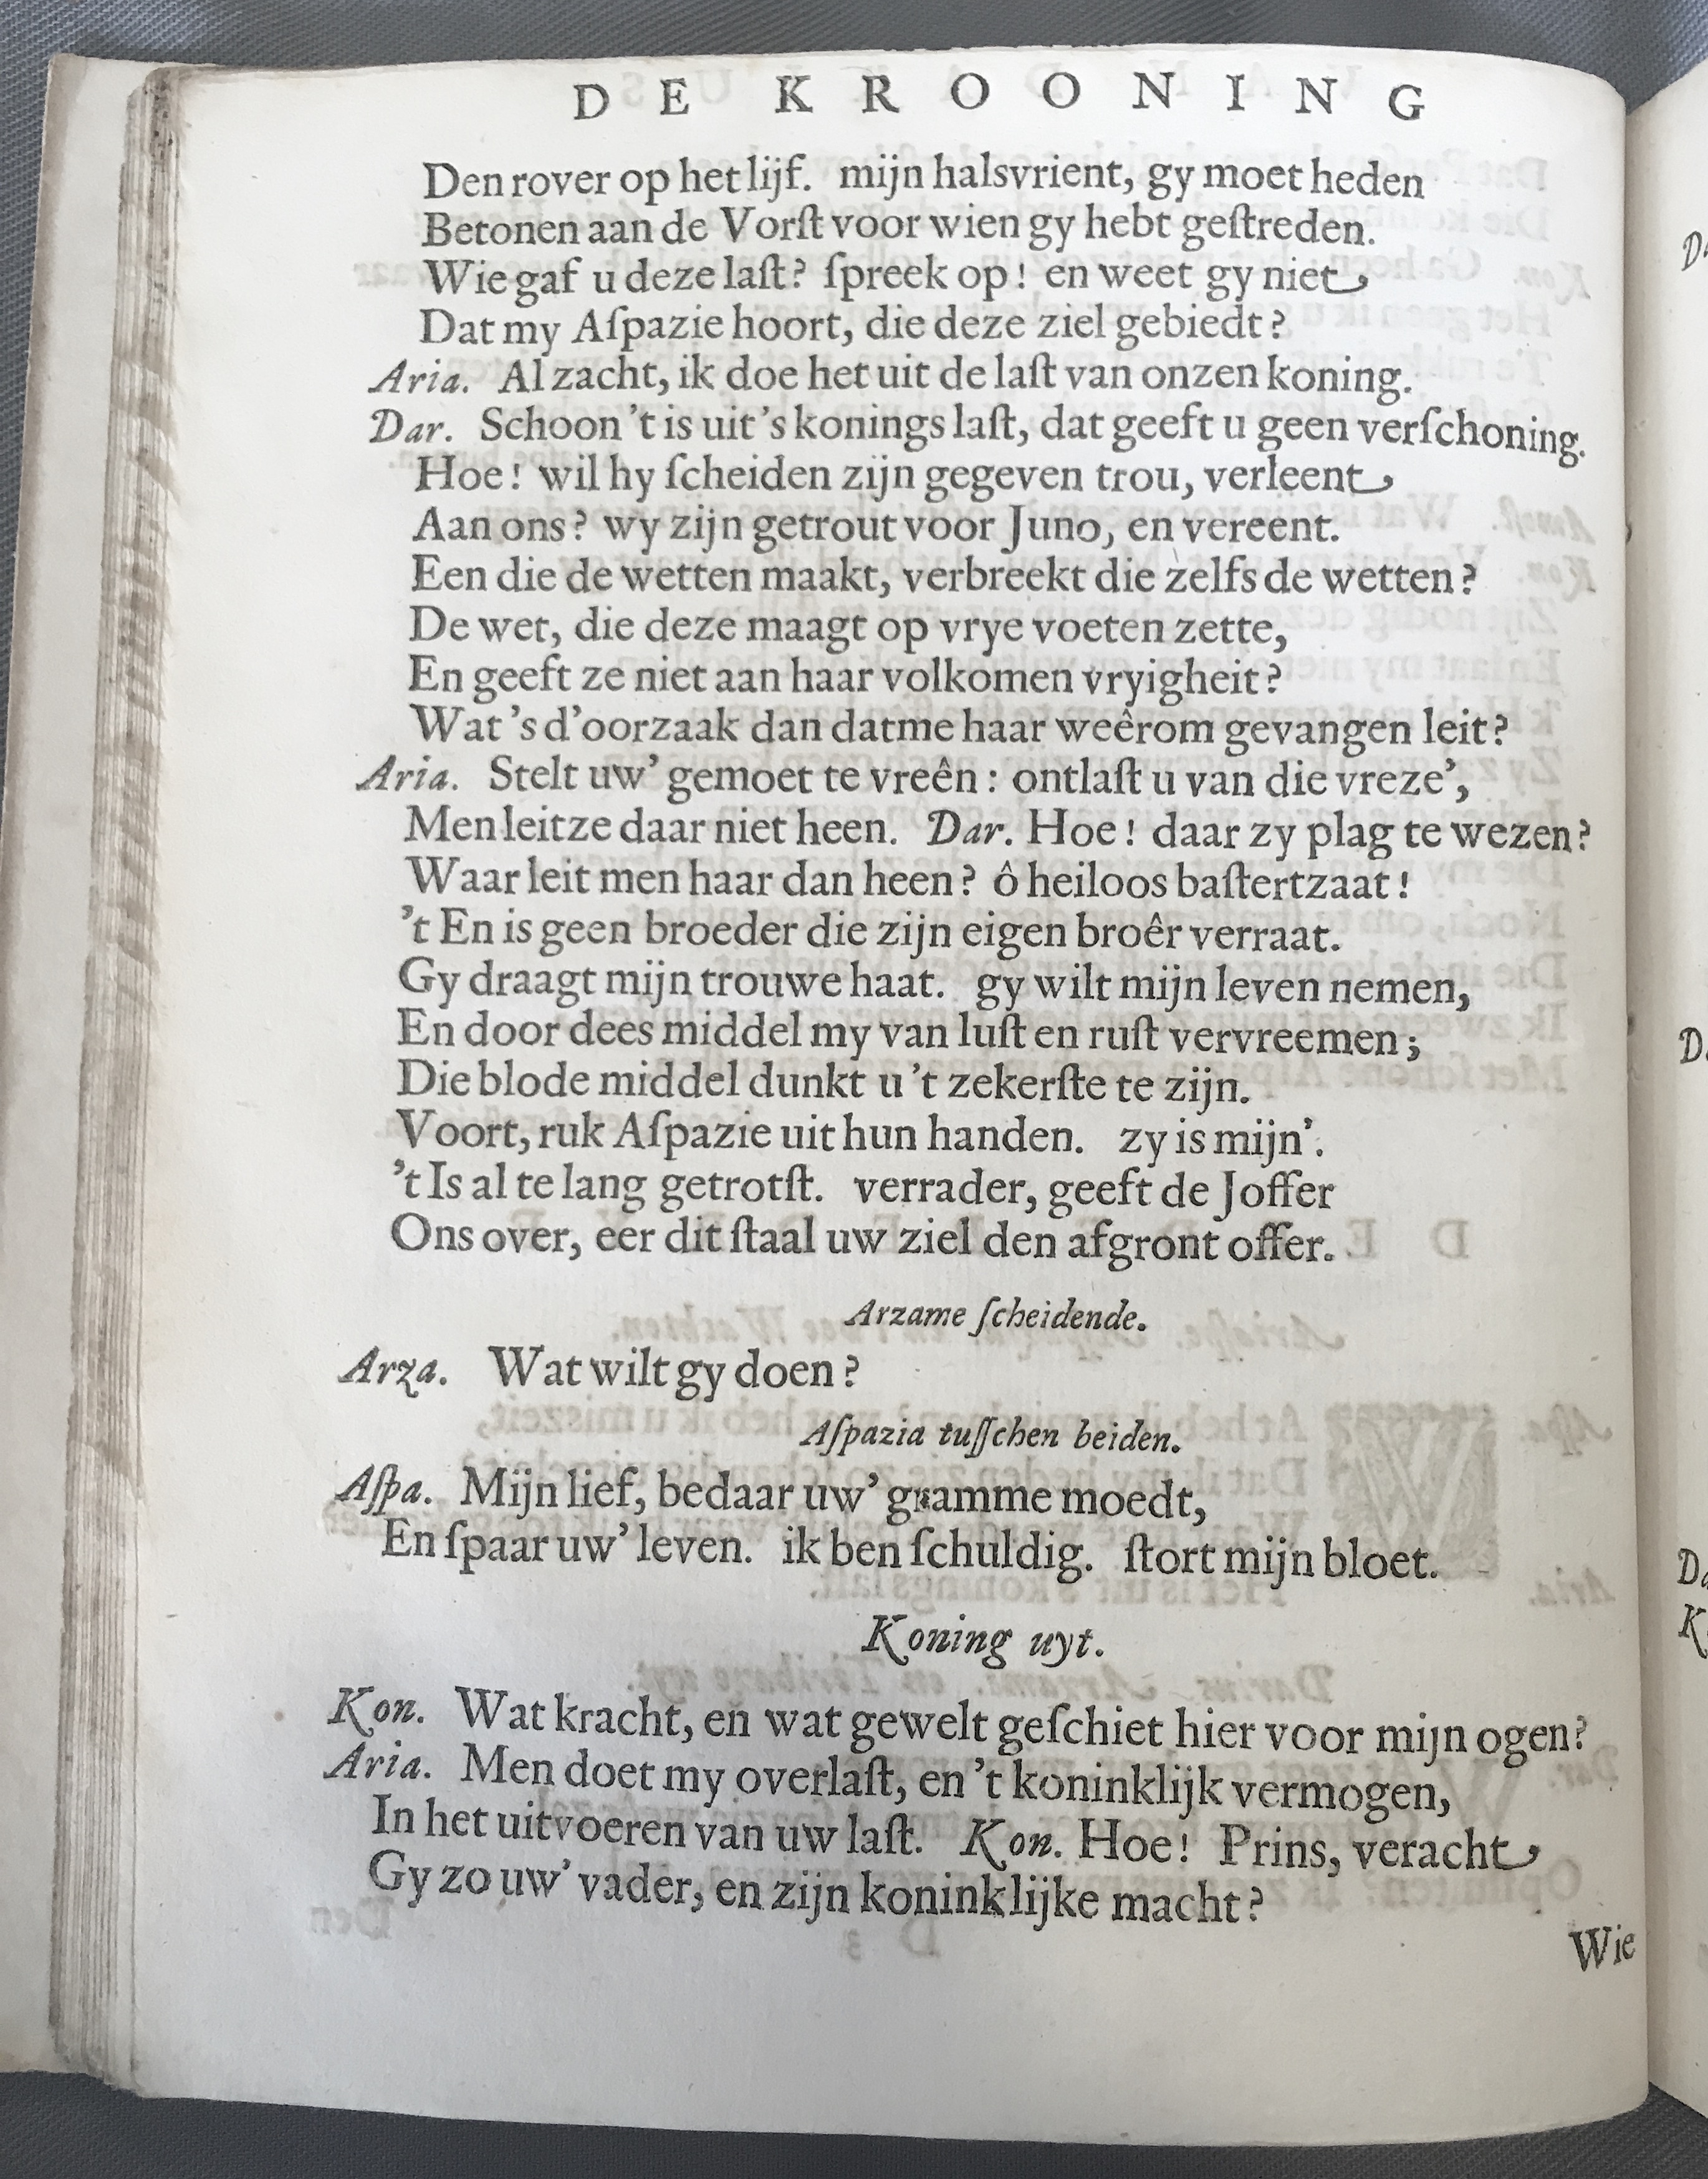 DE KROONING
Den rover op het lijf. mijn halsvrient, gy moet heden
Betonen aan de Vorſt voor wien gy hebt geſtreden.
Wie gaf u deze laſt? ſpreek op! en weet gy niet
Dat my Aſpazie hoort, die deze ziel gebiedt?
Aria. Al zacht, ik doe het uit de laſt van onzen koning.
Dar. Schoon 't is uit 's konings laſt, dat geeft u geen verſchoning.
Hoe! wil hy ſcheiden zijn gegeven trou, verleent
Aan ons? wy zijn getrout voor Juno, en vereent.
Een die de wetten maakt, verbreekt die zelfs de wetten?
De wet, die deze maagt op vrye voeten zette,
En geeft ze niet aan haar volkomen vryigheit?
Wat 's d'oorzaak dan datme haar weêrom gevangen leit?
Aria. Stelt uw' gemoet te vreên: ontlaſt u van die vreze',
Men leitze daar niet heen. Dar. Hoe! daar zy plag te wezen?
Waar leit men haar dan heen? ô heiloos baſtertzaat!
't En is geen broeder die zijn eigen broêr verraat.
Gy draagt mijn trouwe haat. gy wilt mijn leven nemen,
En door dees middel my van luſt en ruſt vervreemen;
Die blode middel dunkt u 't zekerſte te zijn.
Voort, ruk Aſpazie uit hun handen. zy is mijn'.
't Is al te lang getrotſt. verrader, geeft de Joffer
Ons over, eer dit ſtaal uw ziel den afgront offer.
Arzame ſcheidende.
Arza. Wat wilt gy doen?
Aſpazia tuſſchen beiden.
Aſpa. Mijn lief, bedaar uw' gramme moedt,
En ſpaar uw' leven. ik ben ſchuldig. ſtort mijn bloet.
Koning uyt.
Kon. Wat kracht, en wat gewelt geſchiet hier voor mijn ogen?
Aria. Men doet my overlaſt, en 't koninklijk vermogen,
In het uitvoeren van uw laſt. Kon. Hoe! Prins, veracht
Gy zo uw' vader, en zijn koninklijke macht?
Wie